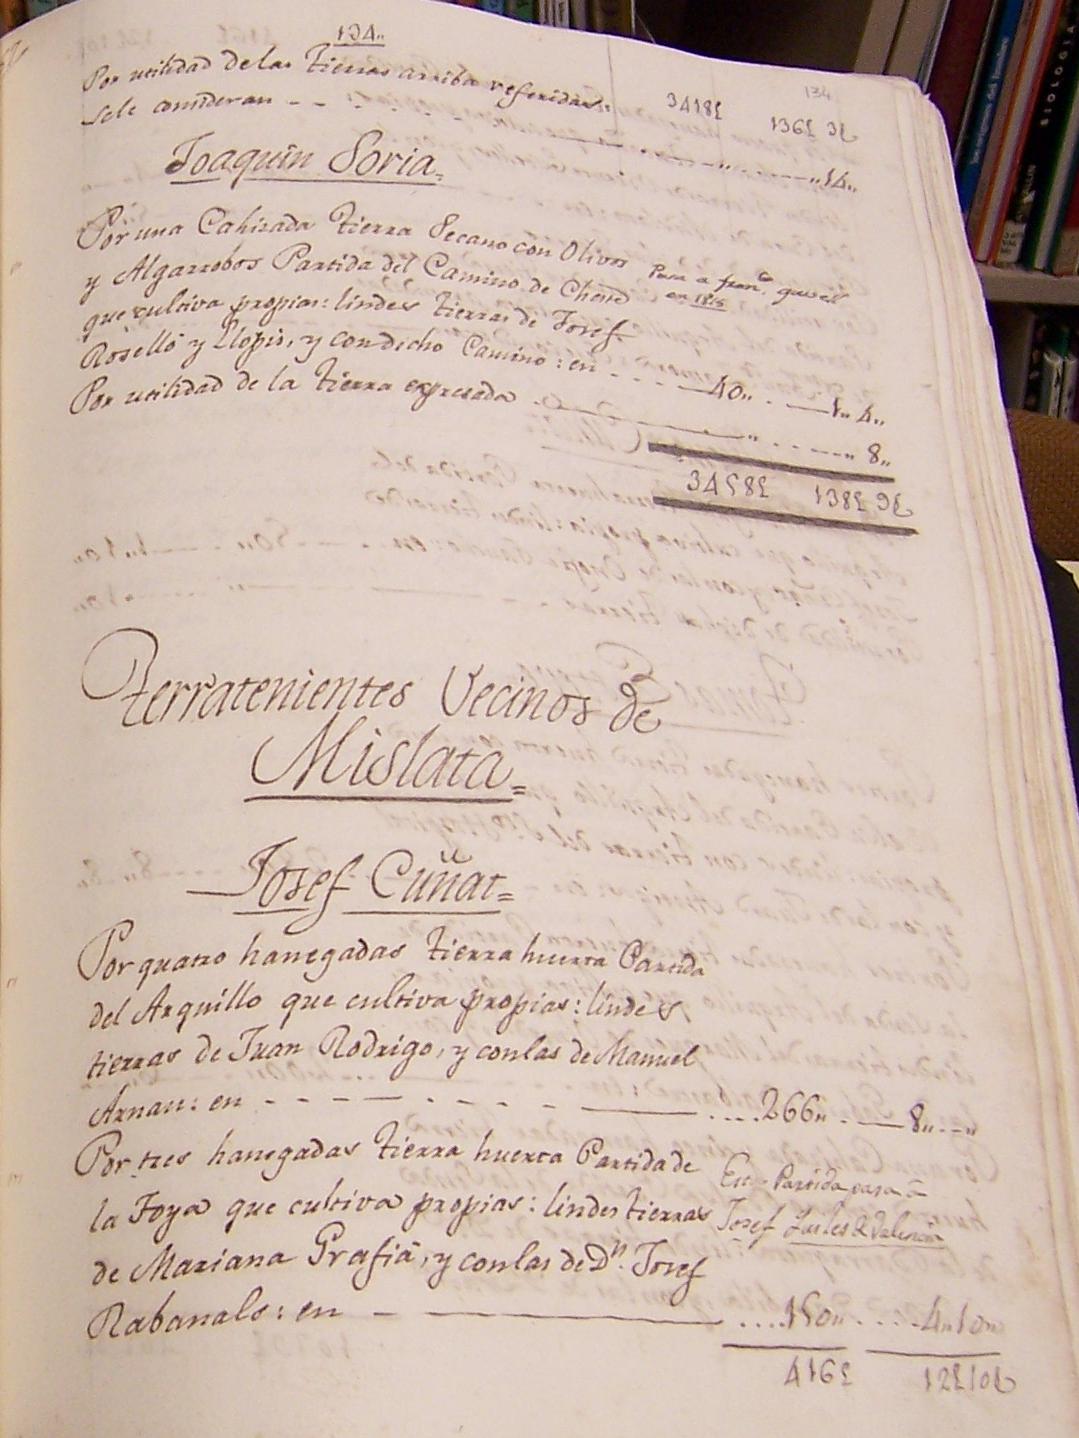 134..
134
Por utilidad de las Tierras arriba referidas:
3418£ 136£ 3
sele consideran - - - " - - - " 14..
Joaquin Soria =
Por una Cahizada tierra Secano con Olivos
y Algarrobos Partida del Camino de
que cultiva propias: lindes tierras de Josef
Roselló y Llopis, y con dicho Camino: en - - - 40.. - 1" 4..
Pasa a fran.co
en 1815
Por utilidad de la tierra expresada - - - " - - - " 8..
3458£ 138£ 3
Terratenientes Vecinos de
Mislata =
Josef Cuñat =
Por quatro hanegadas tierra huerta Partida
del Arquillo que cultiva propias: lindes
tierras de Juan Rodrigo, y con las de Manuel
Arnau: en - - - - 266.. - 8.. - "
Por tres hanegadas tierra huerta Partida de
la Foya que cultiva propias: lindes tierras
de Mariana Grafiá, y con las de Dn. Josef
Rabanals: en - - - 150.. - - - 4" 10..
Esta Partida pasa á
Josef
416£ 12£10